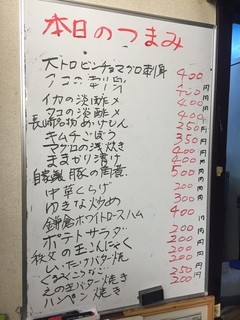 本日のつまみ
大トロビンチョウマグロ刺身 400円
タコの刺身 400円
イカの淡酢〆 400円
タコの淡酢〆 400円
長崎名物 めけじん 250円
キムチごぼう 350円
マグロの浅炊き 400円
ままかり漬け 400円
自家製 豚の角煮 500円
中華くらげ 200円
ゆきな炒め 300円
鎌倉ホワイトロースハム 400円
ポテトサラダ 200円
秩父の玉こんにゃく 200円
しいたけバター焼き 200円
えの玉バター焼き 250円
ハンペン焼き 200円